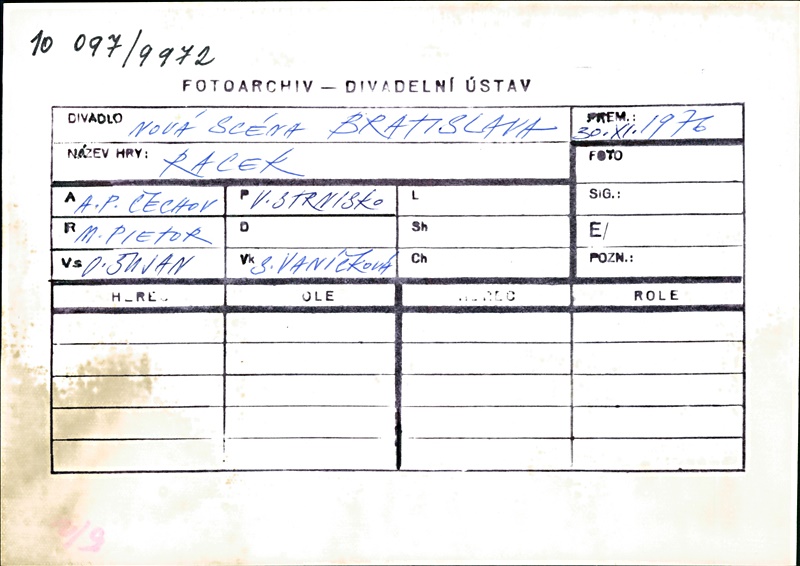 10 097/9972
FOTOARCHIV — DIVADELNÍ ÚSTAV
DIVADLO NOVÁ SCÉNA BRATISLAVA
PREM.: 30.XI.1976
NÁZEV HRY: RACEK
FOTO
A A.P. ČECHOV P V. STRNISKO L SIG.:
R M. PIETOR D Sh E/
Vs O. ŠUJAN Vk S. VANÍČKOVÁ Ch POZN.:
HEREC ROLE HEREC ROLE